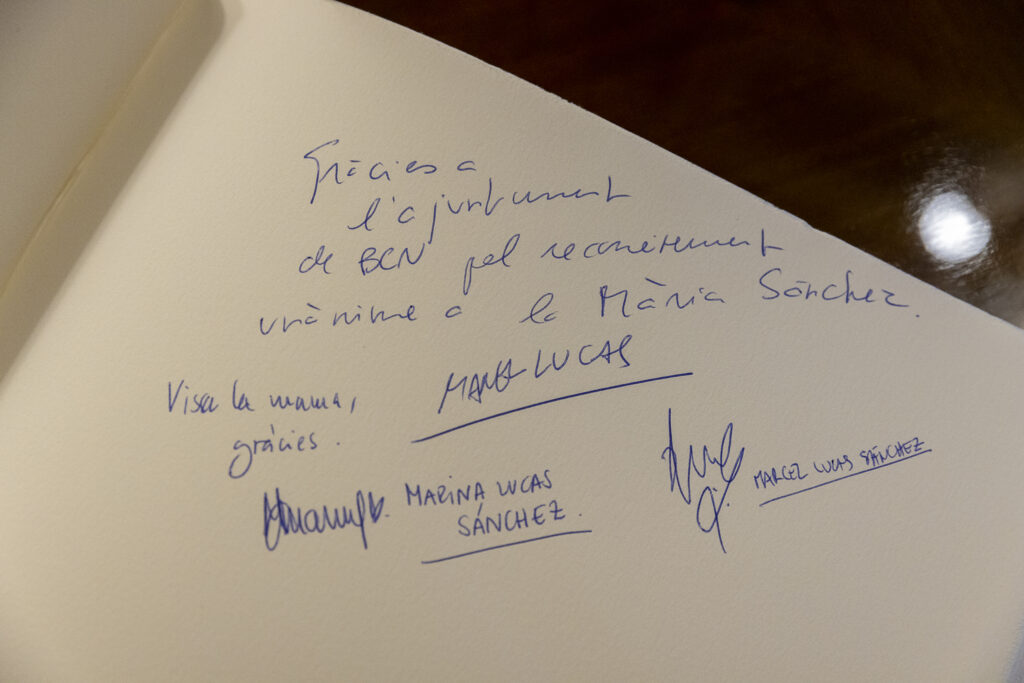 Gràcies a
l'ajuntament
de BCN pel reconeixement
unànime a la Mària Sánchez.
MANEL LUCAS
Visca la mama,
gràcies.
MARINA LUCAS
SÁNCHEZ.
MARCEL LUCAS SÁNCHEZ